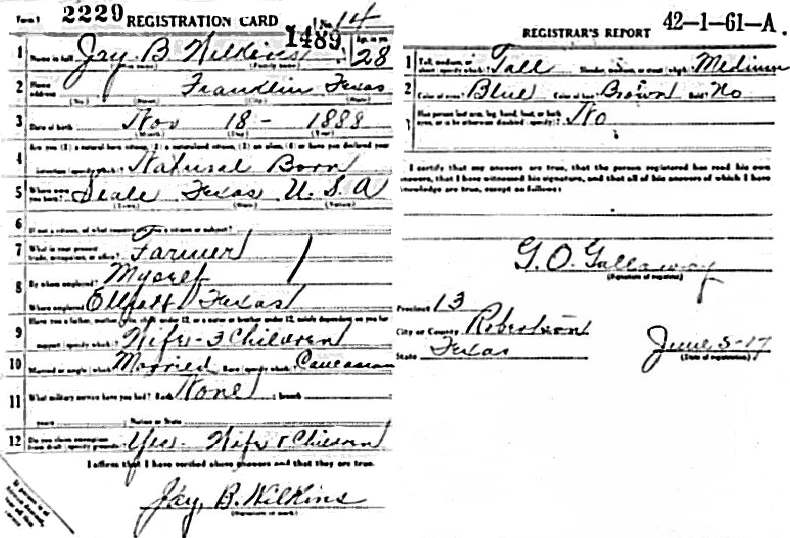 Form 1 2229 REGISTRATION CARD No. 14
1489
1 Name in full Jay B Wilkins Age, in yrs. 28
2 Home address Franklin Texas
(No.) (Street) (City) (State)
3 Date of birth Nov 18 - 1888
(Month) (Day) (Year)
4 Are you (1) a natural born citizen, (2) a naturalized citizen, (3) an alien, (4) or have you declared your
intention (specify which)? Natural Born
5 Where were you born? Seale Texas U. S. A
(Town) (State) (Nation)
6 If not a citizen, of what country are you a citizen or subject?
7 What is your present trade, occupation, or office? Farmer
8 By whom employed? Myself
Where employed? Texas
9 Have you a father, mother, wife, child under 12, or a sister or brother under 12, solely dependent on you for
support (specify which)? Wife - 3 Children
10 Married or single (which)? Married Race (specify which)? Caucasian
11 What military service have you had? Rank None ; branch
years ; Nation or State
12 Do you claim exemption from draft (specify grounds)? Yes - Wife & Children
I affirm that I have verified above answers and that they are true.
Jay, B. Wilkins
(Signature or mark)
REGISTRAR'S REPORT 42-1-61-A.
1 Tall, medium, or short (specify which)? Tall Slender, medium, or stout (which)? Medium
2 Color of eyes? Blue Color of hair? Brown Bald? No
3 Has person lost arm, leg, hand, foot, or both
eyes, or is he otherwise disabled (specify)? No
I certify that my answers are true, that the person registered has read his own
answers, that I have witnessed his signature, and that all of his answers of which I have
knowledge are true, except as follows:
G. O. Gallaway
(Signature of registrar)
Precinct 13
City or County Robertson
State Texas
June 5-17
(Date of registration)